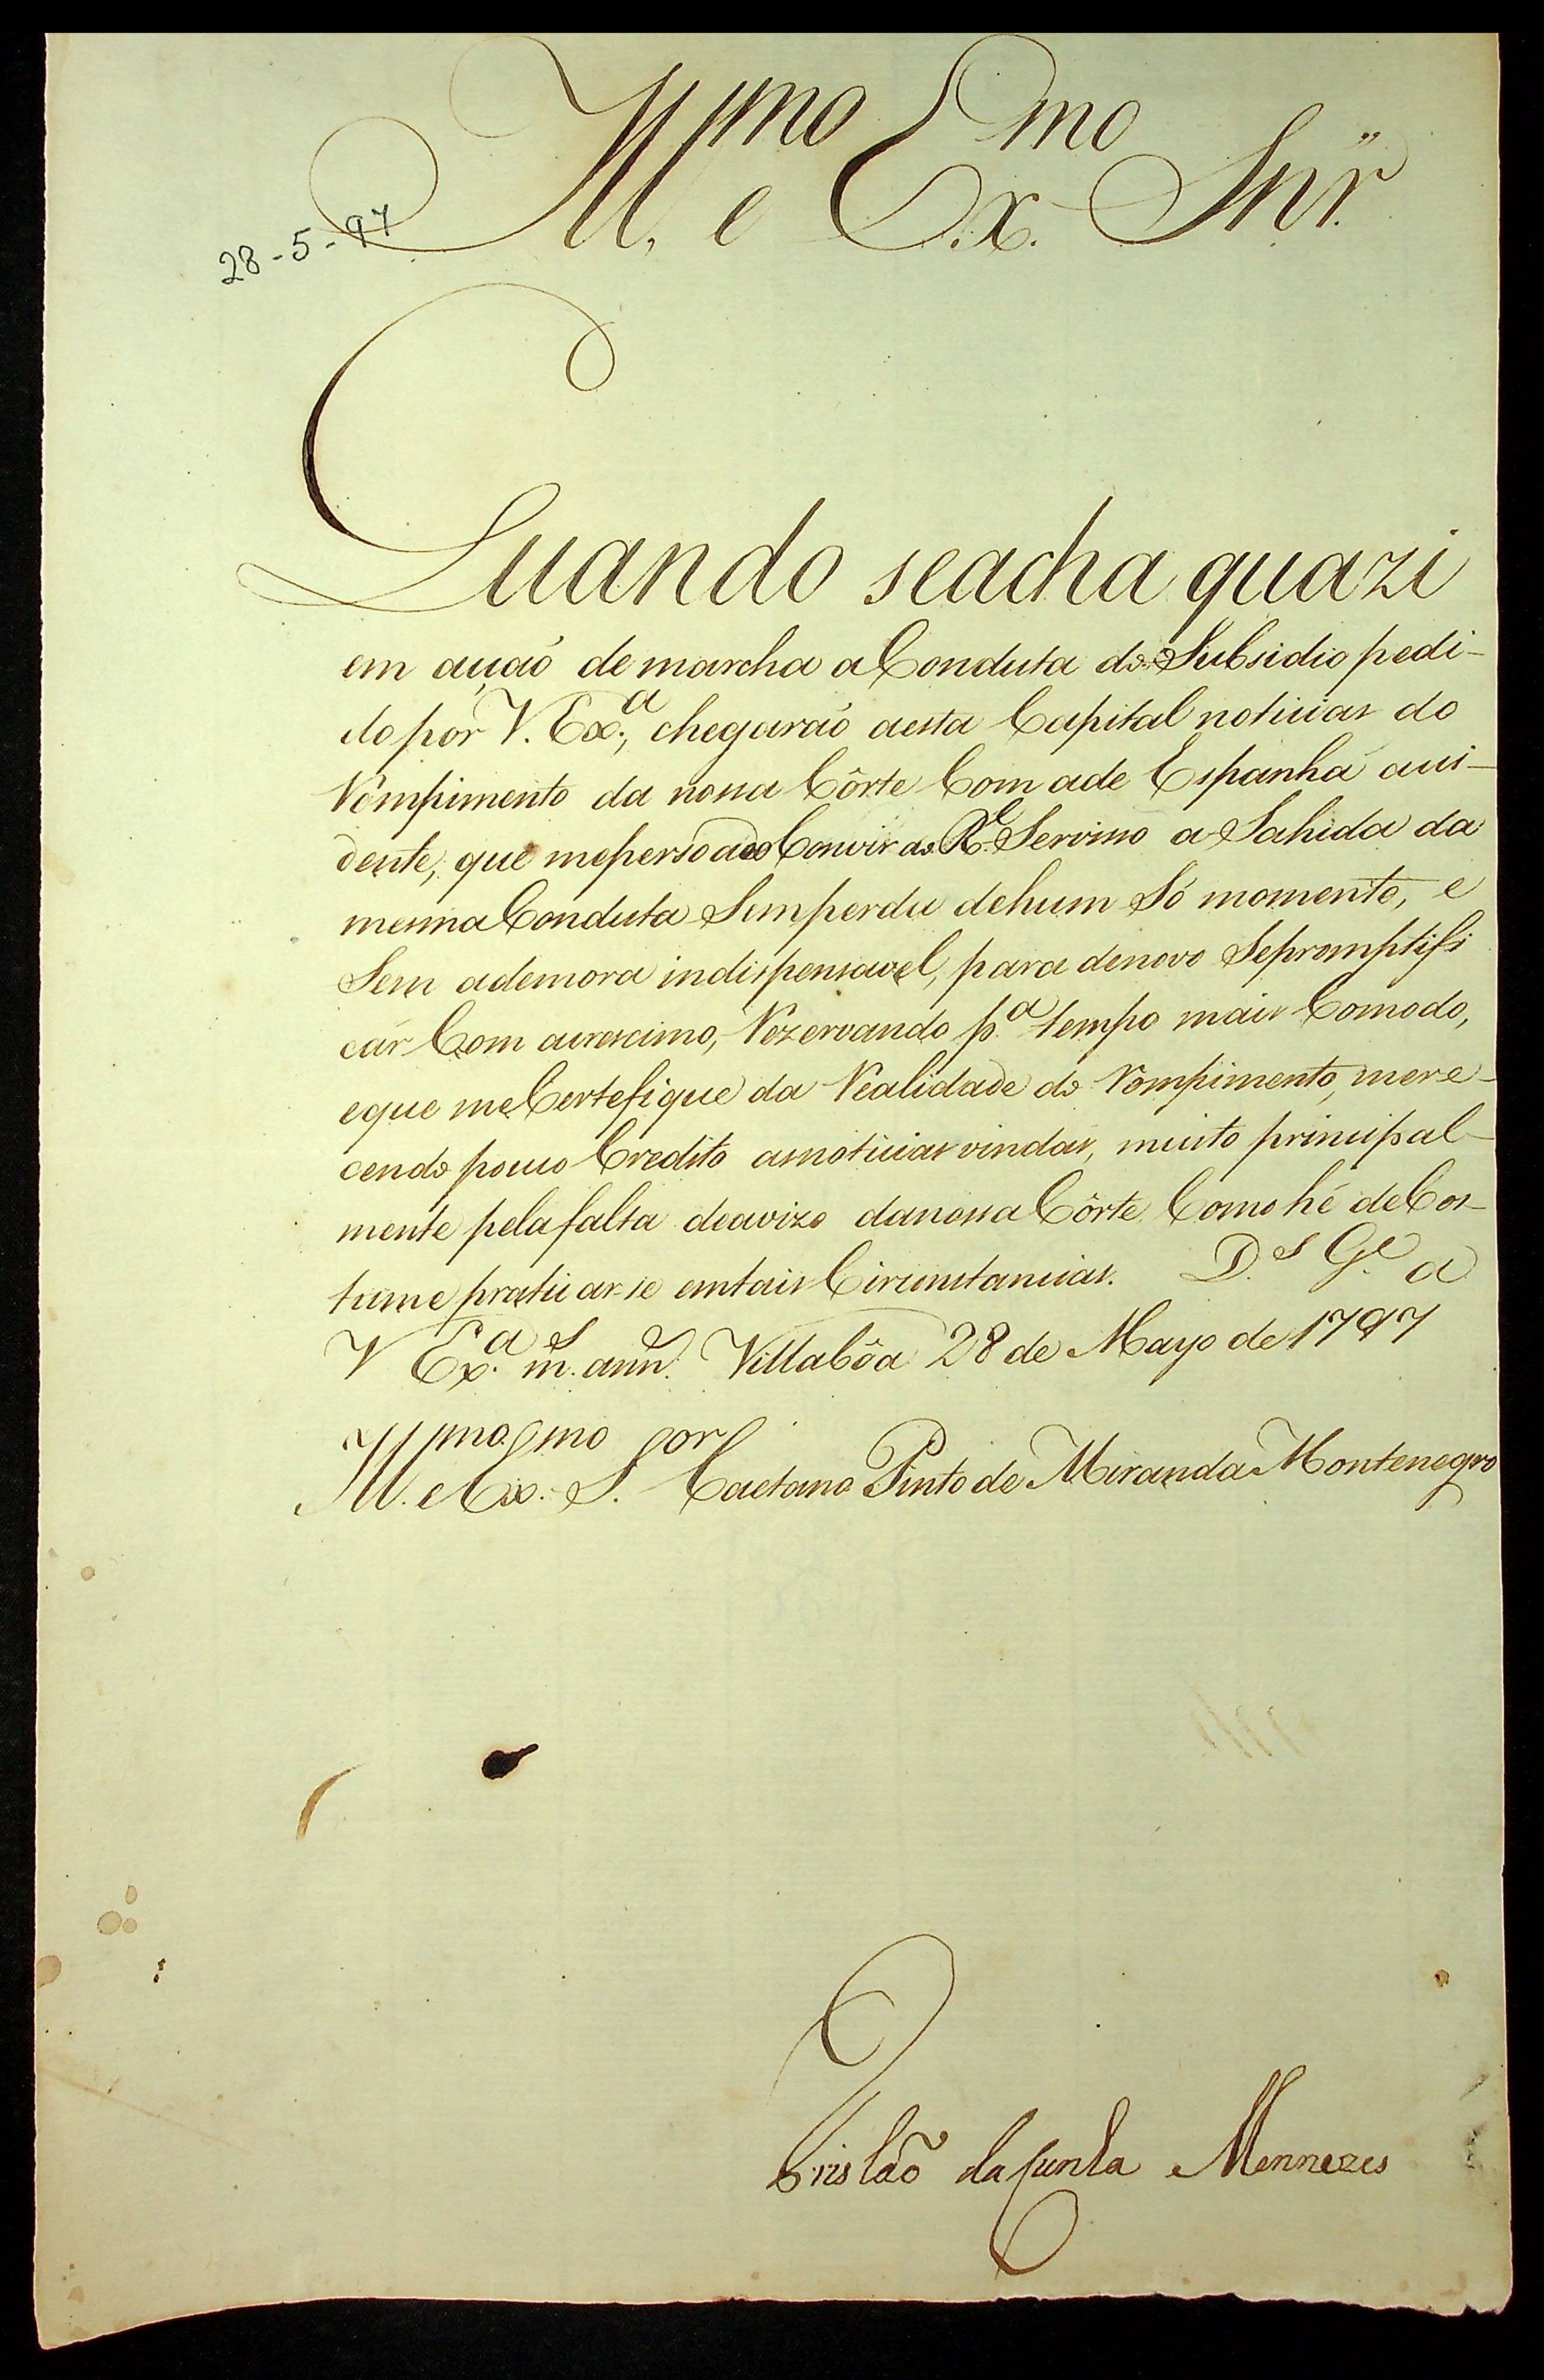 Ill.mo e Ex.mo Snr.
28-5-97
Quando seacha quazi
em auçaõ de marcha a Conduta do Subsidio pedi-
do por V. Ex.a, chegaraõ aesta Capital noticias do
Rompimento da nossa Côrte Com ade Espanha aci-
dente, que mepersoadeo Convir ao R.l Serviso a Sahida da
mesma Conduta Sem perda dehum Só momento, e
Sem ademora indispensavel, para denovo Sepromptifi
car Com acrescimo, Rezervando p.a tempo mais Comodo,
eque me Certefique da Realidade do Rompimento, mere-
cendo pouco Credito asnoticias vindas, muito principal-
mente pela falta deavizo danossa Côrte Como hé deCos-
tume praticar-se emtais Circunstancias. D.s G.e a
V Ex.a m.s ann.s Villabôa 28 de Mayo de 1797
Ill.mo e Ex.mo S.or Caetano Pinto de Miranda Montenegro
Tristaõ da Cunha Mennezes